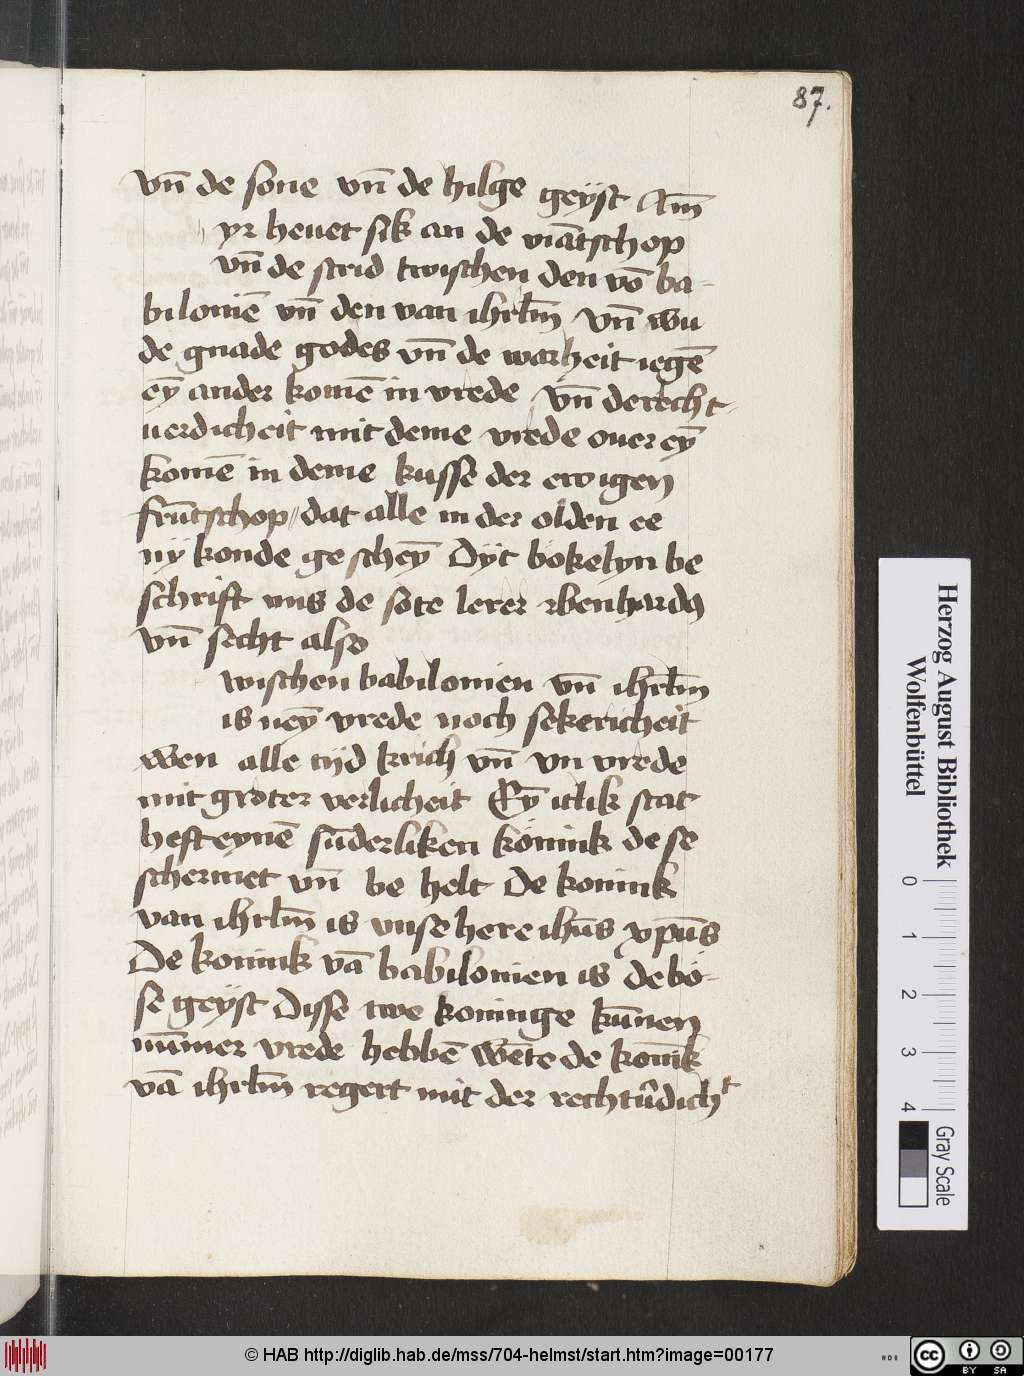 87.
vn̄ de sone vn̄ de hilge geÿst Am̄
yr heuet sik an de viātschop
vn̄ de strid twischen den vō ba-
biloniē vn̄ den van ihrl̄m vn̄ wu
de gnade godes vn̄ de warheit iegē
eȳ ander komē in vrede vn̄ de recht-
uerdicheit mit deme vrede ouer eȳ
komē in deme kusse der ewigen
frūtschop / dat alle in der olden ee
nÿ konde ge scheȳ Dÿt bökelyn be
schrift vns de sote lerer
vn̄ secht also
wischen babilonien vn̄ ihrl̄m
is neȳ vrede noch sekericheit
wen alle tÿd krich vn̄ vn vrede
mit groter verlicheit Eȳ itlik stat
heft eynē sūderliken könink de se
schermet vn̄ be helt De konink
van ihrl̄m is vnse here ihūs xp̄us
De konink vā babilonien is de bö-
se geÿst Disse twe koninge kūnen
nūmer vrede hebbē wēte de konīk
vā ihrl̄m regert mit der rechtu̓dichᵗ
Herzog August Bibliothek
Wolfenbüttel
0 1 2 3 4
Gray Scale
© HAB http://diglib.hab.de/mss/704-helmst/start.htm?image=00177
HAB
cc BY SA